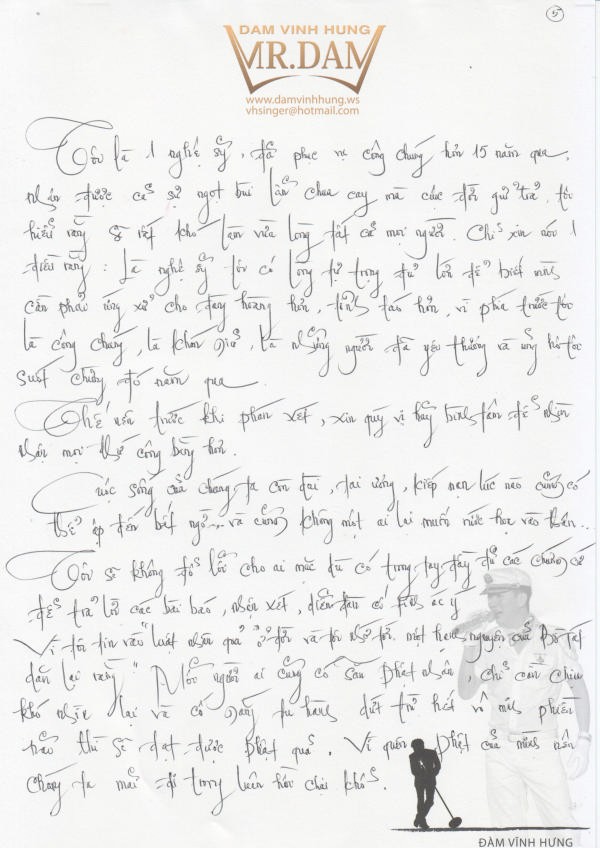 5
DAM VINH HUNG
MR.DAM
www.damvinhhung.ws
vhsinger@hotmail.com
Tôi là 1 nghệ sỹ, đã phục vụ công chúng hơn 15 năm qua,
nhận được cả sự ngọt bùi lẫn chua cay mà cuộc đời gửi trả, tôi
hiểu rằng sẽ rất khó làm vừa lòng tất cả mọi người. Chỉ xin nói 1
điều rằng: Là nghệ sỹ tôi có lòng tự trọng đủ lớn để biết mình
cần phải ứng xử cho đàng hoàng hơn, tỉnh táo hơn, vì phía trước tôi
là công chúng, là khán giả, là những người đã yêu thương và ủng hộ tôi
suốt chừng đó năm qua
Thế nên trước khi phán xét, xin quý vị hãy bình tâm để nhìn
nhận mọi thứ công bằng hơn.
Cuộc sống của chúng ta còn dài, tai ương, kiếp nạn lúc nào cũng có
thể ập đến bất ngờ... và cũng không một ai lại muốn rước họa vào thân...
Tôi sẽ không đổ lỗi cho ai mặc dù có trong tay đầy đủ các chứng cứ
để trả lời các bài báo, nhận xét, diễn đàn có tính ác ý
Vì tôi tin vào "luật nhân quả" ở đời và tôi nhớ tới một hạnh nguyện của Bồ tát
dặn lại rằng "Mỗi người ai cũng có sẵn Phật nhân, chỉ cần chịu
khó nhìn lại và cố gắng tu hành dứt trừ hết vô minh phiền
não thì sẽ đạt được Phật quả. Vì quên Phật của mình nên
chúng ta mãi đi trong luân hồi chịu khổ.
ĐÀM VĨNH HƯNG